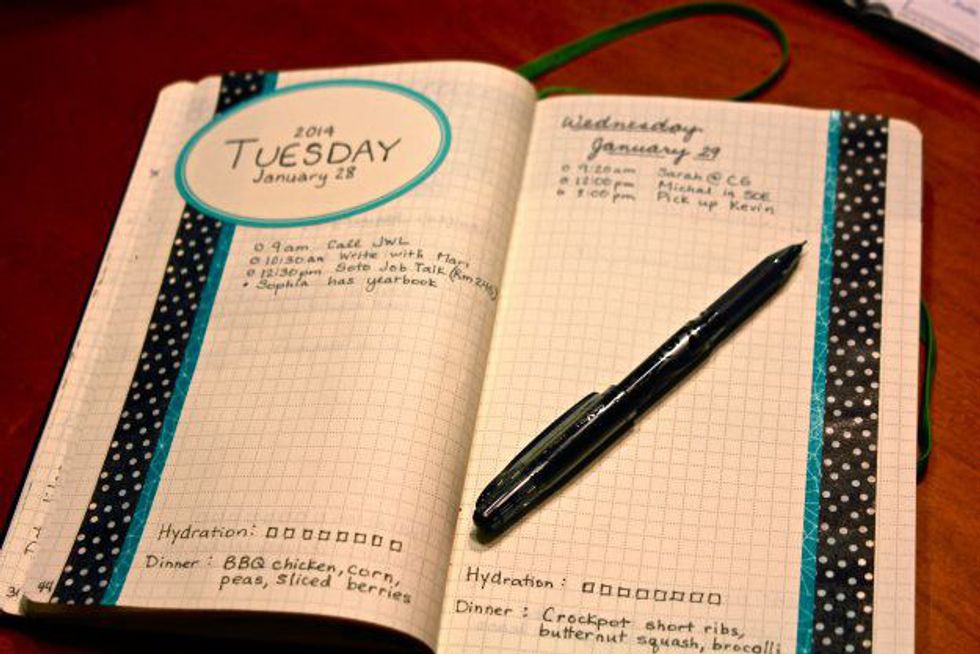 2014
TUESDAY
January 28
9am Call JWL
10:30am Write with Mari
12:30pm Soto Job Talk (Rm 246)
• Sophia has yearbook
Hydration:
Dinner: BBQ chicken, corn,
peas, sliced berries
44
Wednesday
January 29
9:20am Sarah @ CG
12:00pm Michal in SOE
Pick up Kevin
Hydration:
Dinner: Crockpot short ribs,
butternut squash, brocolli